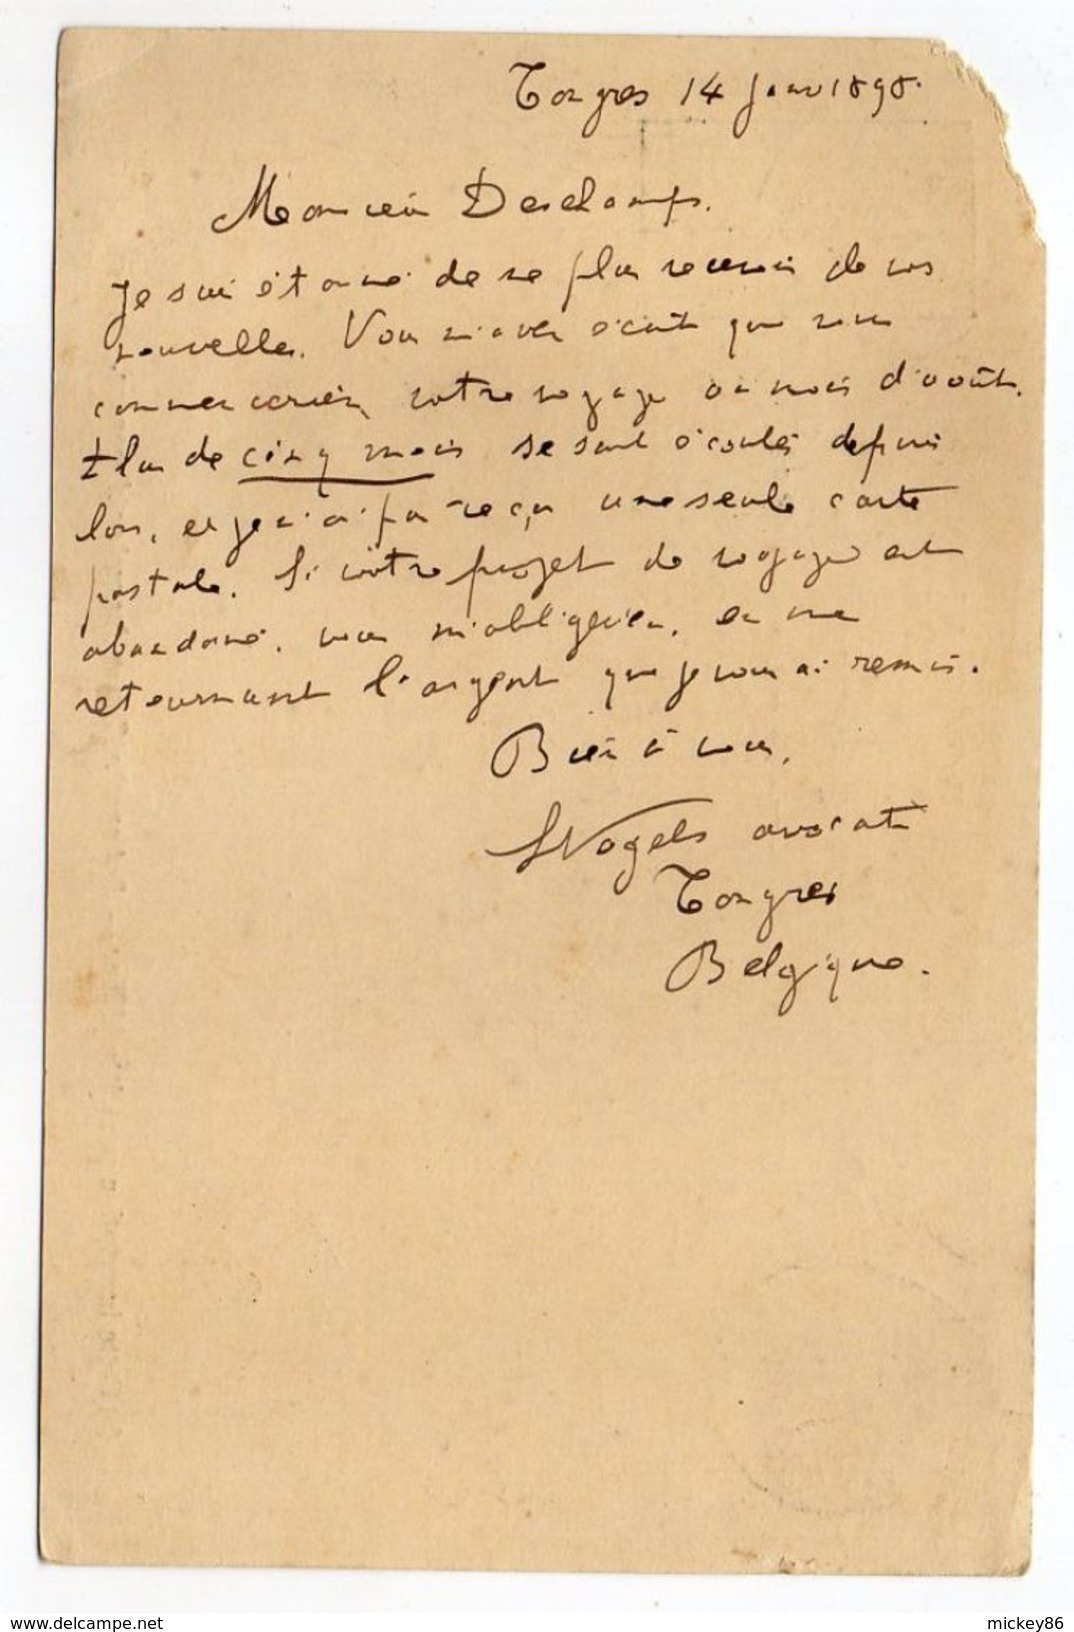 Tongres 14 janv 1898.
Monsieur Deschamps.
Je suis étonné de ne plus recevoir de vos
nouvelles. Vous m'avez écrit que vous
commenceriez votre voyage au mois d'août.
Plus de cinq mois se sont écoulés depuis
lors, et je n'ai pas reçu une seule carte
postale. Si votre projet de voyage est
abandoné, vous m'obligeriez, en me
retournant l'argent que je vous ai remis.
Bien à vous,
Nagels avocat
Tongres
Belgique.
www.delcampe.net
mickey86